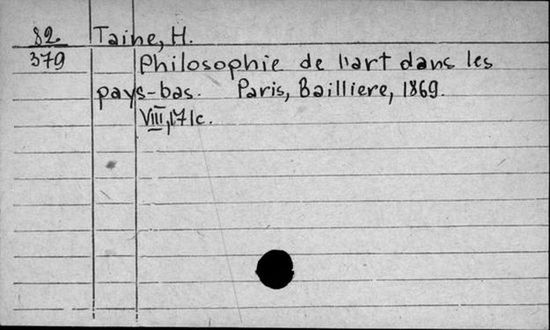 82 Taine, H.
379 Philosophie de l'art dans les
pays-bas. Paris, Bailliere, 1869.
VIII, 171c.